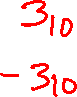 3₁₀
-3₁₀